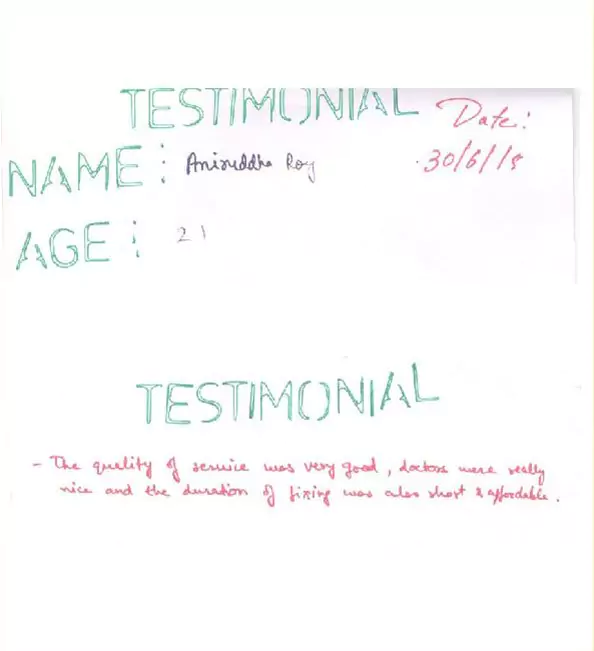 TESTIMONIAL
Date:
NAME: Aniruddha Roy
30/6/18
AGE: 21
TESTIMONIAL
- The quality of service was very good, doctors were really
nice and the duration of fixing was also short & affordable.